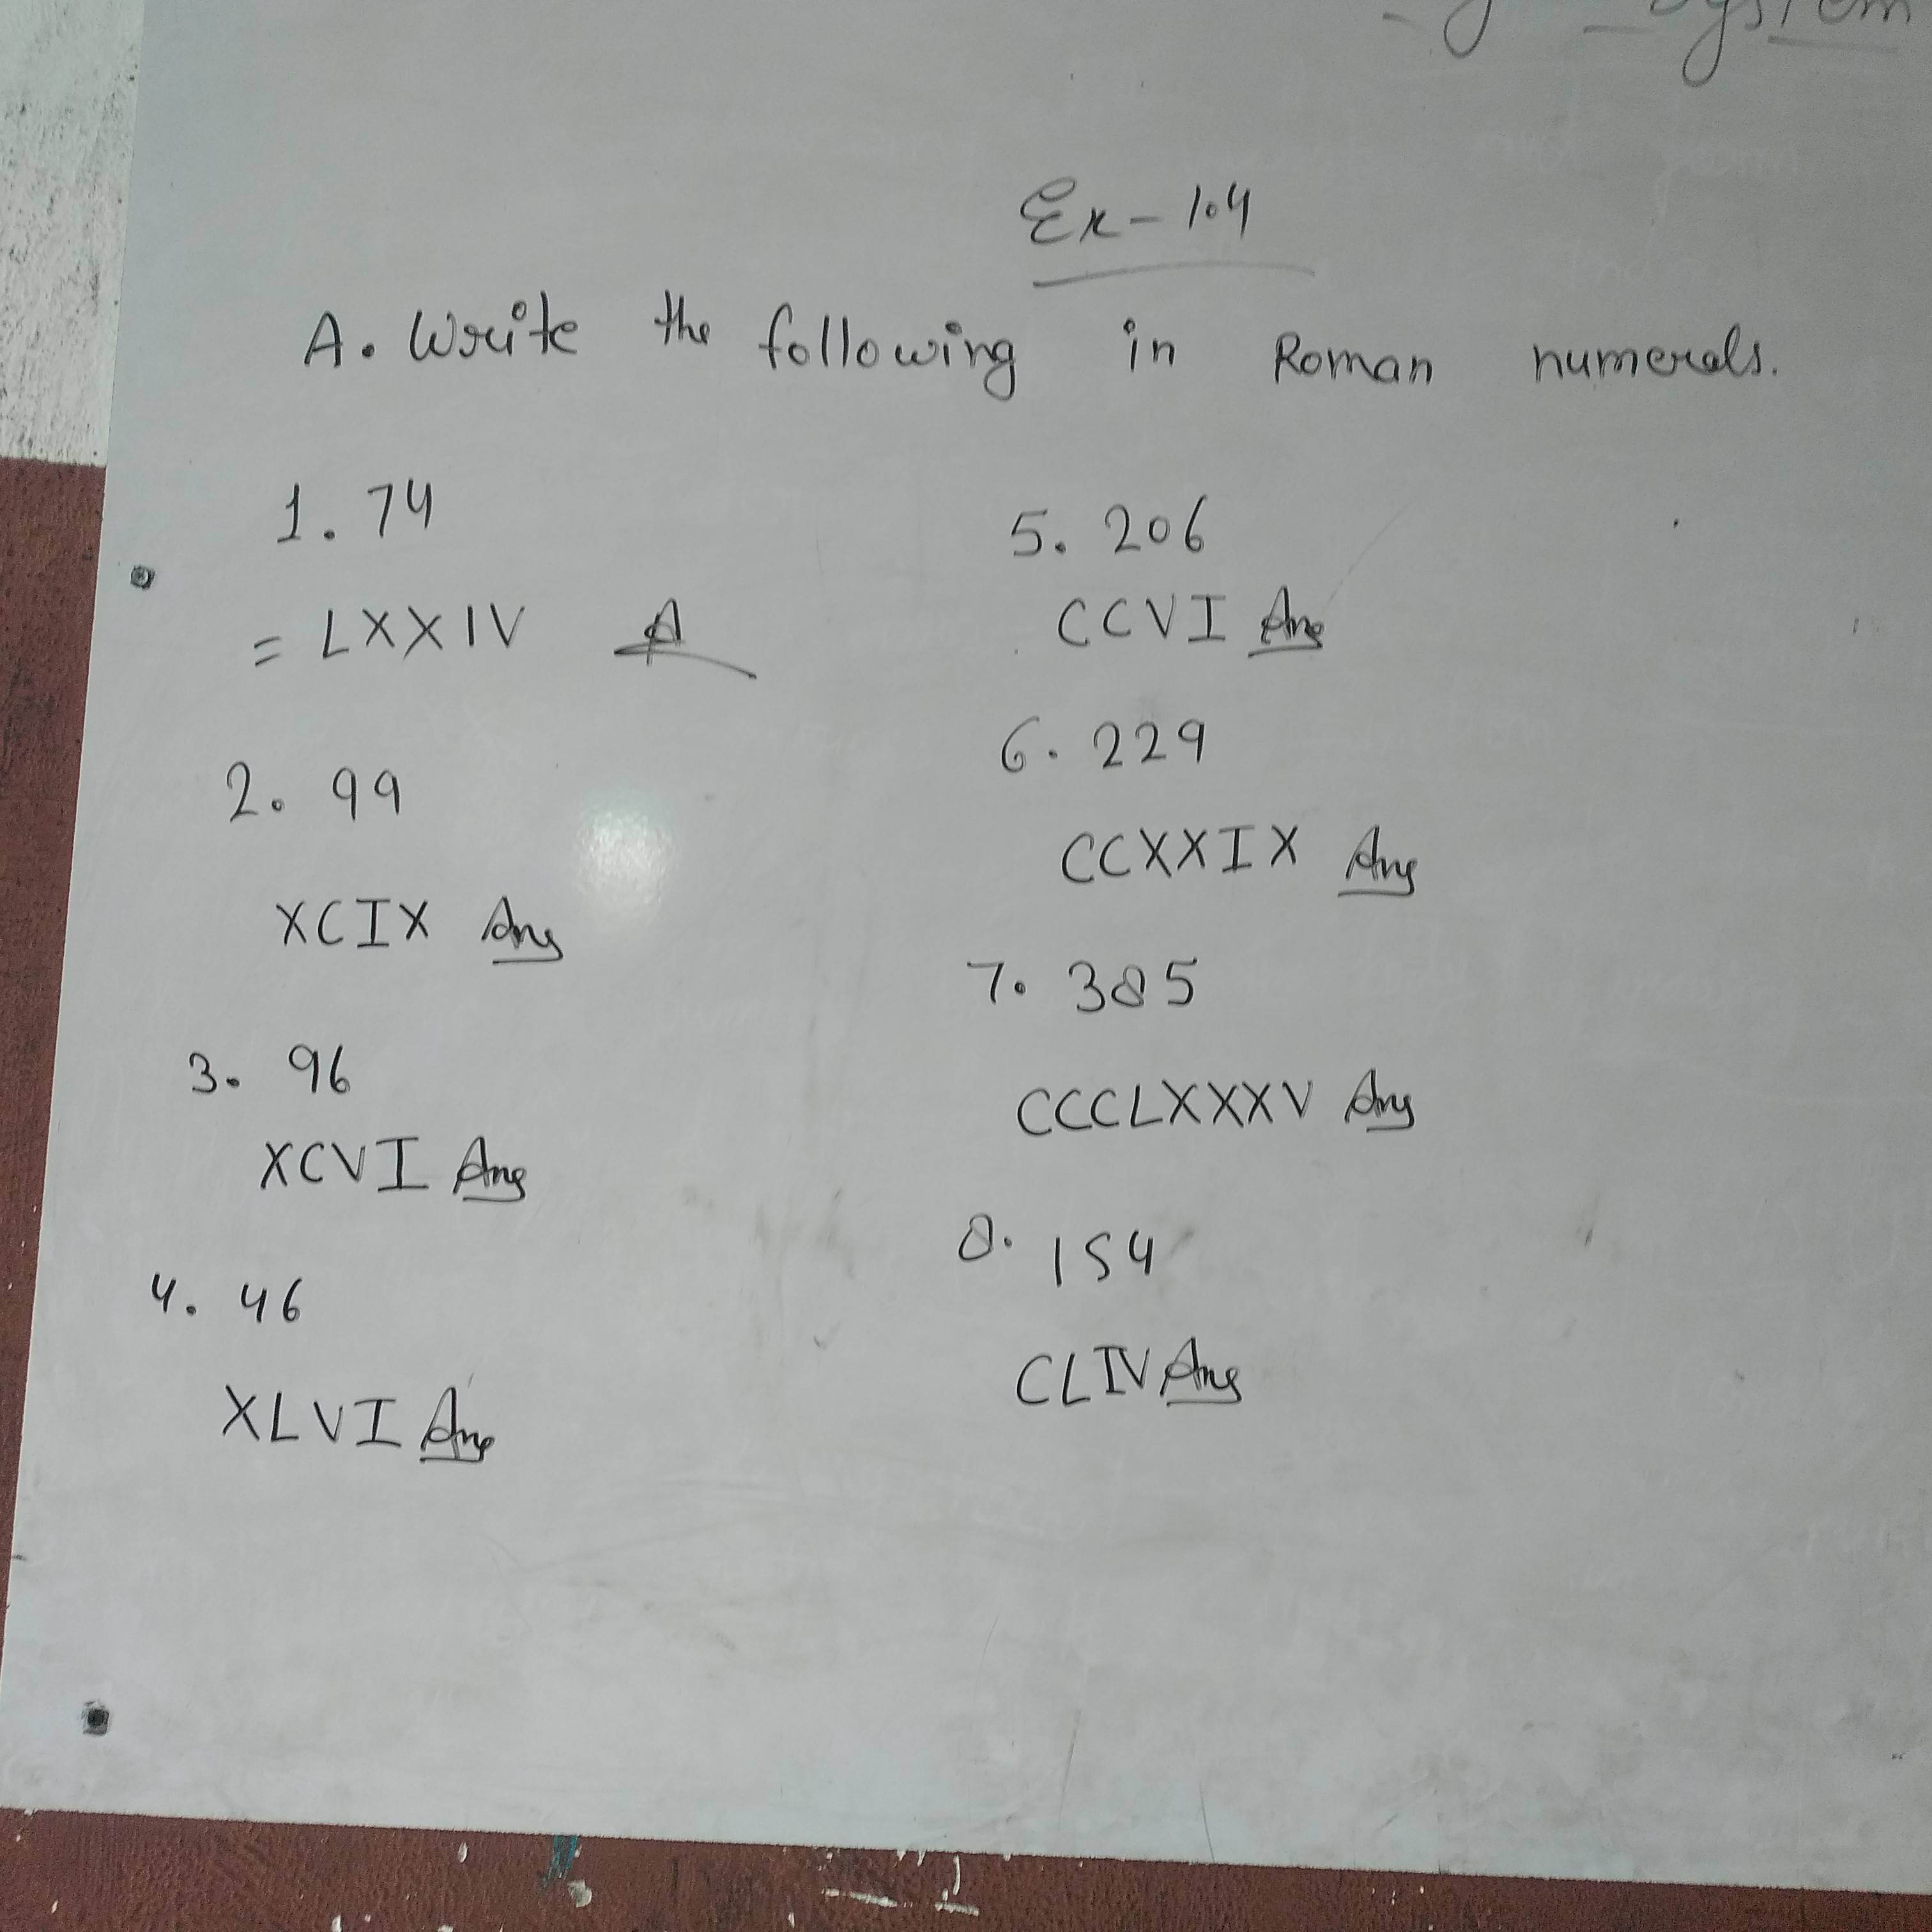 System
Ex - 1.4
A. Write the following in Roman numerals.
1. 74
= LXXIV A
2. 99
XCIX Ans
3. 96
XCVI Ans
4. 46
XLVI Ans
5. 206
CCVI Ans
6. 229
CCXXIX Ans
7. 385
CCCLXXXV Ans
8. 154
CLIV Ans